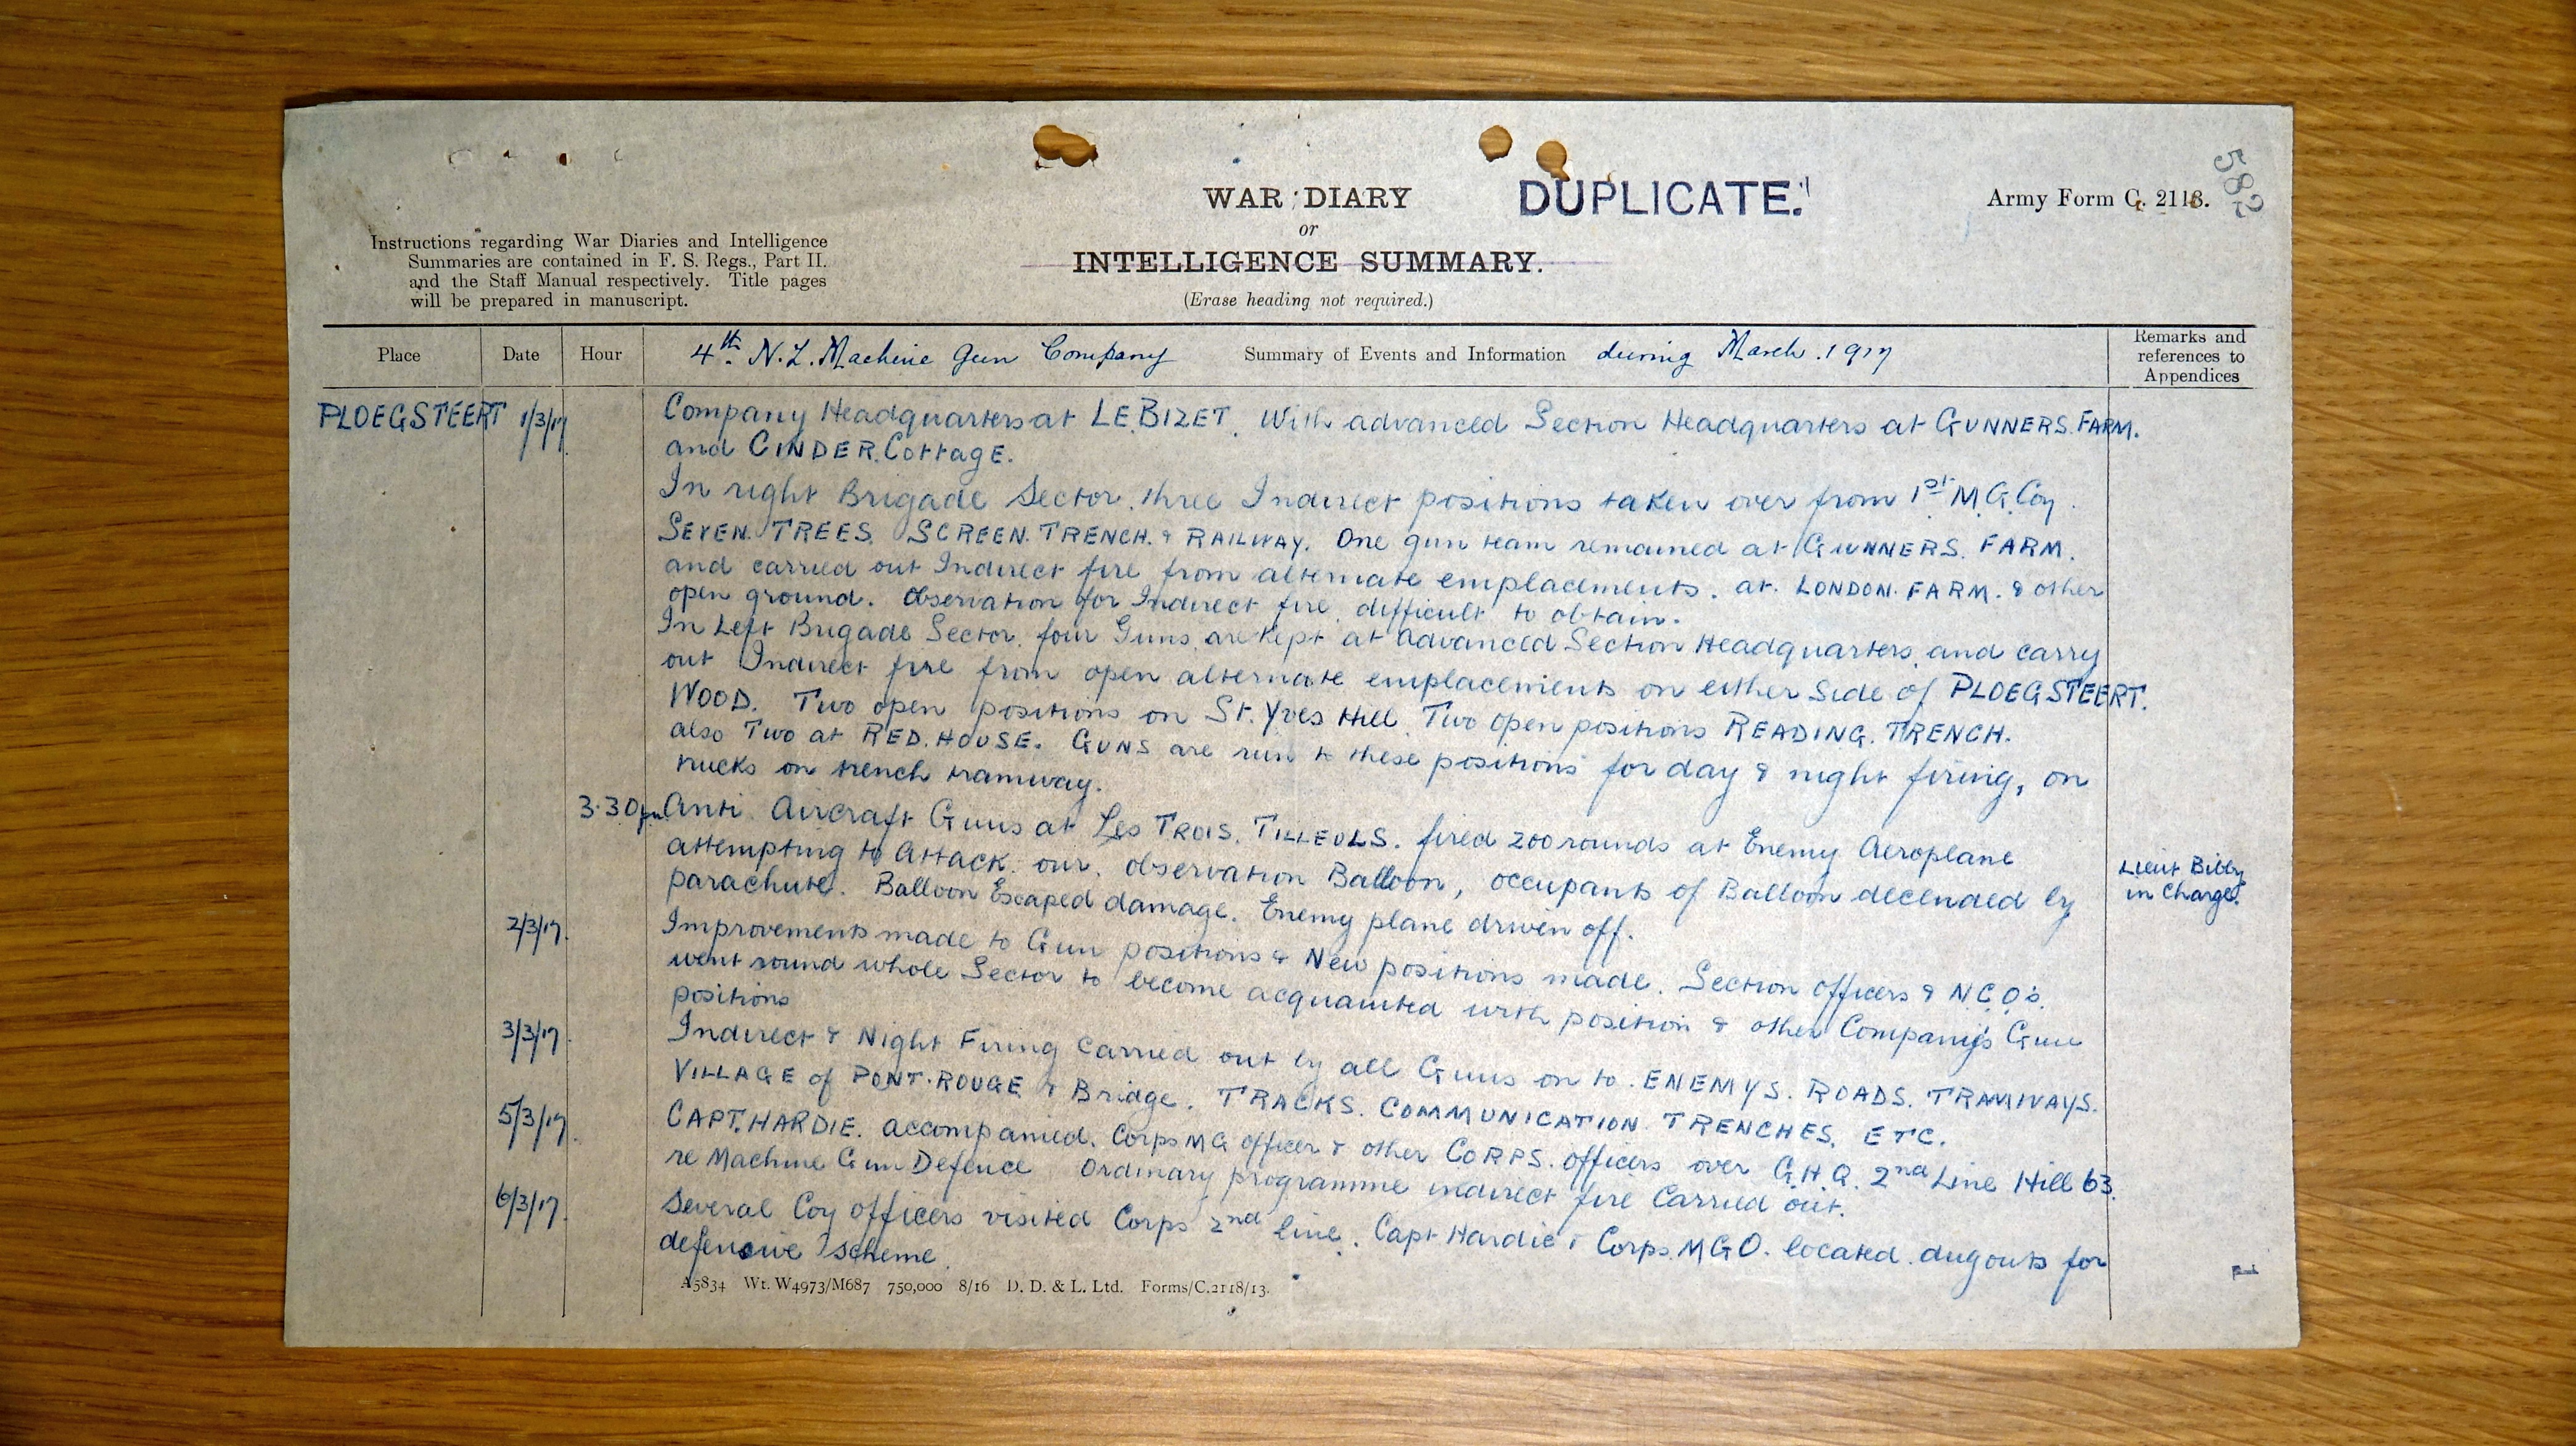 582
WAR DIARY
or
INTELLIGENCE SUMMARY.
(Erase heading not required.)
DUPLICATE.
Army Form C. 2118.
Instructions regarding War Diaries and Intelligence
Summaries are contained in F. S. Regs., Part II.
and the Staff Manual respectively. Title pages
will be prepared in manuscript.
Place Date Hour 4th. N.Z. Machine Gun Company Summary of Events and Information during March. 1917
Remarks and
references to
Appendices
PLOEGSTEERT 1/3/17 Company Headquarters at LE.BIZET. With advanced Section Headquarters at GUNNERS.FARM.
and CINDER.COTTAGE.
In right Brigade Sector. three Indirect positions taken over from 1st M.G.Coy.
SEVEN.TREES. SCREEN.TRENCH. & RAILWAY. One gun team remained at GUNNERS. FARM.
and carried out Indirect fire from alternate emplacements. at. LONDON.FARM. & other
open ground. Observation for Indirect fire difficult to obtain.
In Left Brigade Sector, four Guns are kept at Advanced Section Headquarters, and carry
out Indirect fire from open alternate emplacements on either side of PLOEGSTEERT.
WOOD. Two open positions on St. Yves Hill Two open positions READING. TRENCH.
also Two at RED.HOUSE. GUNS are run to these positions for day & night firing, on
trucks on trench tramway.
3.30pm Anti Aircraft Guns at Les TROIS. TILLEULS. fired 200 rounds at Enemy Aeroplane
attempting to Attack our. observation Balloon, occupants of Balloon decended by
parachute. Balloon Escaped damage. Enemy plane driven off.
Lieut Bibby
in Charge.
2/3/17. Improvements made to Gun positions & New positions made. Section officers & N.C.O's.
went round whole Sector to become acquainted with position & other Company's Gun
positions
3/3/17 Indirect & Night Firing carried out by all Guns on to. ENEMYS. ROADS. TRAMWAYS.
VILLAGE of PONT.ROUGE & Bridge. TRACKS. COMMUNICATION TRENCHES. ETC.
5/3/17. CAPT.HARDIE. accompanied. Corps MG officer & other CORPS. officers over G.H.Q. 2nd Line Hill 63.
re Machine Gun Defence Ordinary programme indirect fire Carried out.
6/3/17. Several Coy officers visited Corps 2nd line. Capt Hardie & Corps.MGO. located. dugouts for
defensive scheme
A5834 Wt. W4973/M687 750,000 8/16 D. D. & L. Ltd. Forms/C.2118/13.
1